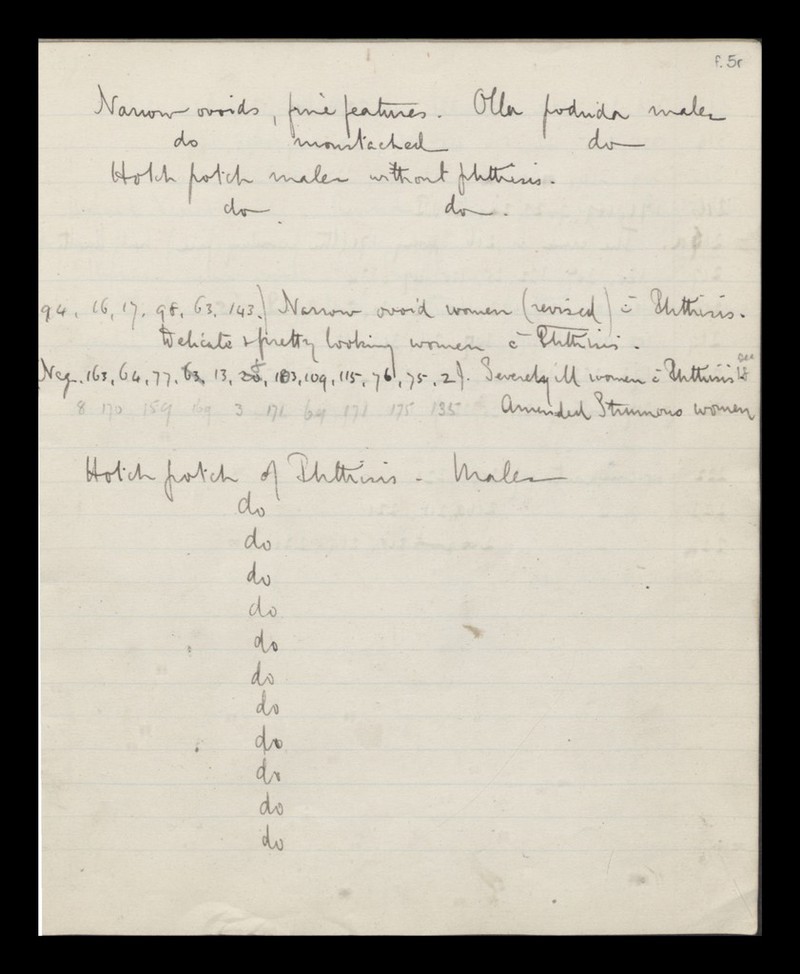 f. 5r
Narrow ovoids, fine features. Olla podrida males
do moustached do
Hotch potch males without phthisis.
do do.
94, 16, 17, 98, 63, 143.) Narrow ovoid women (revised) c̄ Phthisis.
Delicate & pretty looking women c̄ Phthisis.
Neg. 163, 64, 77, 63, 13, 103, 109, 115, 76, 75, 2). Severely ill women c̄ Phthisis
8 170 159 169 3 171 69 171 175 135 Amended Strumous women
Hotch potch of Phthisis - Males
do
do
do
do
do
do
do
do
do
do
do